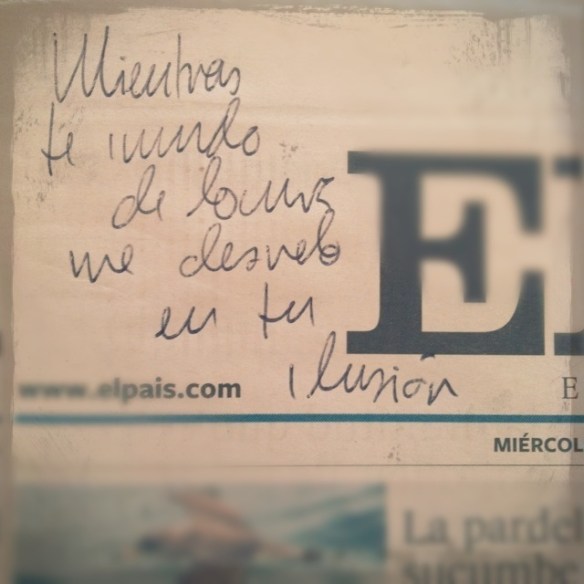 Mientras
te inundo
de locura
me desvelo
en tu
ilusión
E
www.elpais.com
E
MIÉRCOL
La pardel
sucumbe